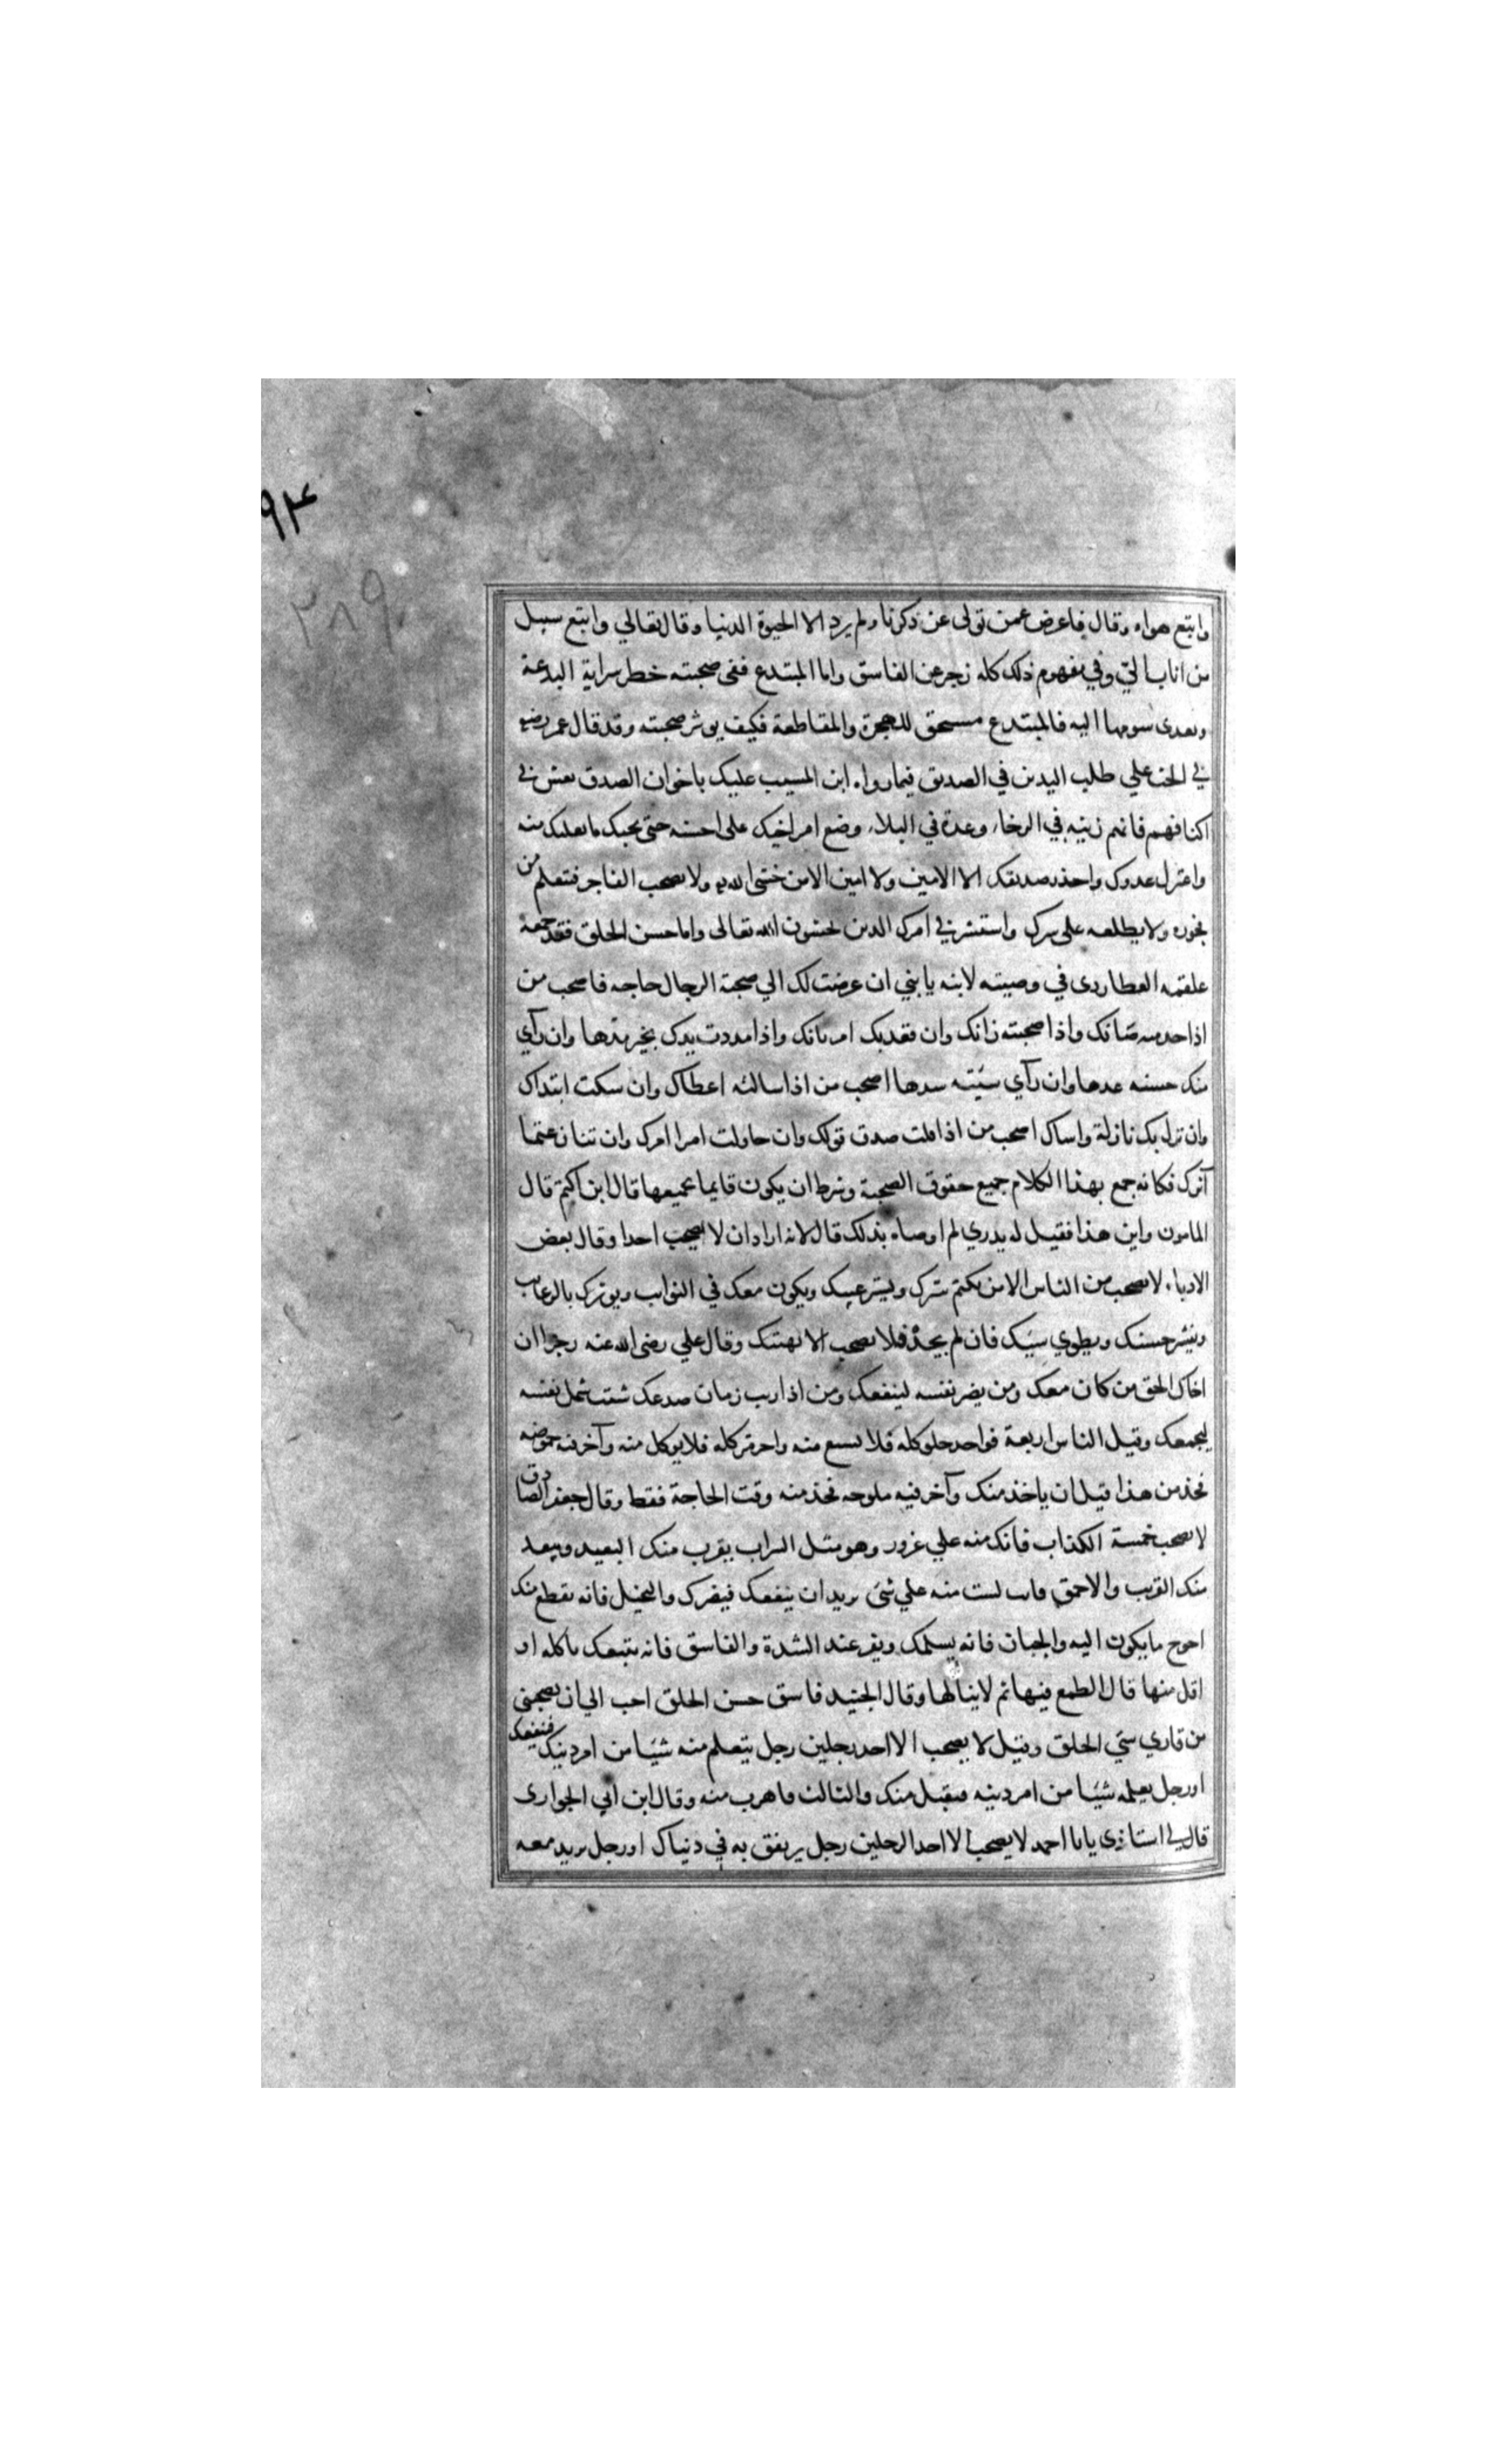 ٩٤
٢٨٩
واتبع هواه وقال فاعرض عمن تولى عن ذكرنا ولم يرد الا الحيوة الدنيا وقال تعالي واتبع سبيل
من اناب الي وفي مفهوم ذلك كله زجر عن الفاسق واما المبتدع ففي صحبته خطر سراية البدعة
وتعدى شومها اليه فالمبتدع مستحق للهجرة والمقاطعة فكيف يوثر صحبته وقد قال عمر رضه
في الحث علي طلب التدين في الصديق فيما رواه ابن المسيب عليك باخوان الصدق تعش في
اكنافهم فانهم زينه في الرخاء وعدة في البلاء وضع امر اخيك على احسنه حتى يجيك ما يغلبك منه
واعتزل عدوك واحذر صديقك الا الامين ولا امين الا من خشى الله ولا تصحب الفاجر فتعلم من
فجوره ولا تطلعه على سرك واستشر في امرك الذين يخشون الله تعالى واما حسن الخلق فقد جمعه
علقمه العطاردى في وصيته لابنه يا بني ان عرضت لك الي صحبة الرجال حاجه فاصحب من
اذا خدمته صانك واذا صحبته زانك وان قعد بك امر مانك واذا مددت يدك بخير مدها وان رآي
منك حسنه عدها وان رآي سيئه سدها اصحب من اذا سالته اعطاك وان سكت ابتداك
وان نزل بك نازلة واساك اصحب من اذا قلت صدق قولك وان حاولت امرا امرك وان تنازعتما
آثرك فكانه جمع بهذا الكلام جميع حقوق الصحبة وشرط ان يكون قايما بجميعها قال ابن اكثم قال
المامون واين هذا فقيل له يدري لم اوصاه بذلك قال لانه اراد ان لا يصحب احدا وقال بعض
الادباء لا تصحب من الناس الا من يكتم سرك ويستر عيبك ويكون معك في النوايب ويوثرك بالرغايب
وينشر حسنك ويطوي سيئك فان لم تجد فلا تصحب الا نفسك وقال علي رضى الله عنه رجزا ان
اخاك الحق من كان معك ومن يضر نفسه لينفعك ومن اذا ريب زمان صدعك شتت شمل نفسه
ليجمعك وقيل الناس اربعة فواحد حلو كله فلا يشبع منه واخر مر كله فلا يوكل منه وآخر فيه حموضه
فخذ من هذا قبل ان ياخذ منك وآخر فيه ملوحه فخذ منه وقت الحاجة فقط وقال جعفر الصادق
لا تصحب خمسة الكذاب فانك منه علي غرور وهو مثل السراب يقرب منك البعيد ويبعد
منك القريب والاحمق فانك لست منه علي شئ يريد ان ينفعك فيضرك والبخيل فانه يقطع منك
احوج ما يكون اليه والجبان فانه يسلمك ويفر عند الشدة والفاسق فانه يبيعك باكله او
اقل منها قال الطمع فيها ثم لا ينالها وقال الجنيد فاسق حسن الخلق احب الي ان يصحبني
من قاري سئ الخلق وقيل لا تصحب الا احد رجلين رجل يتعلم منه شيئا من امر دينك فينفعك
او رجل يعلمه شيئا من امر دينه فيقبل منك والثالث فاهرب منه وقال ابن ابي الحوارى
قال لي استاذي يا با احمد لا تصحب الا احد الرجلين رجل يرتفق به في دنياك او رجل يريد معه